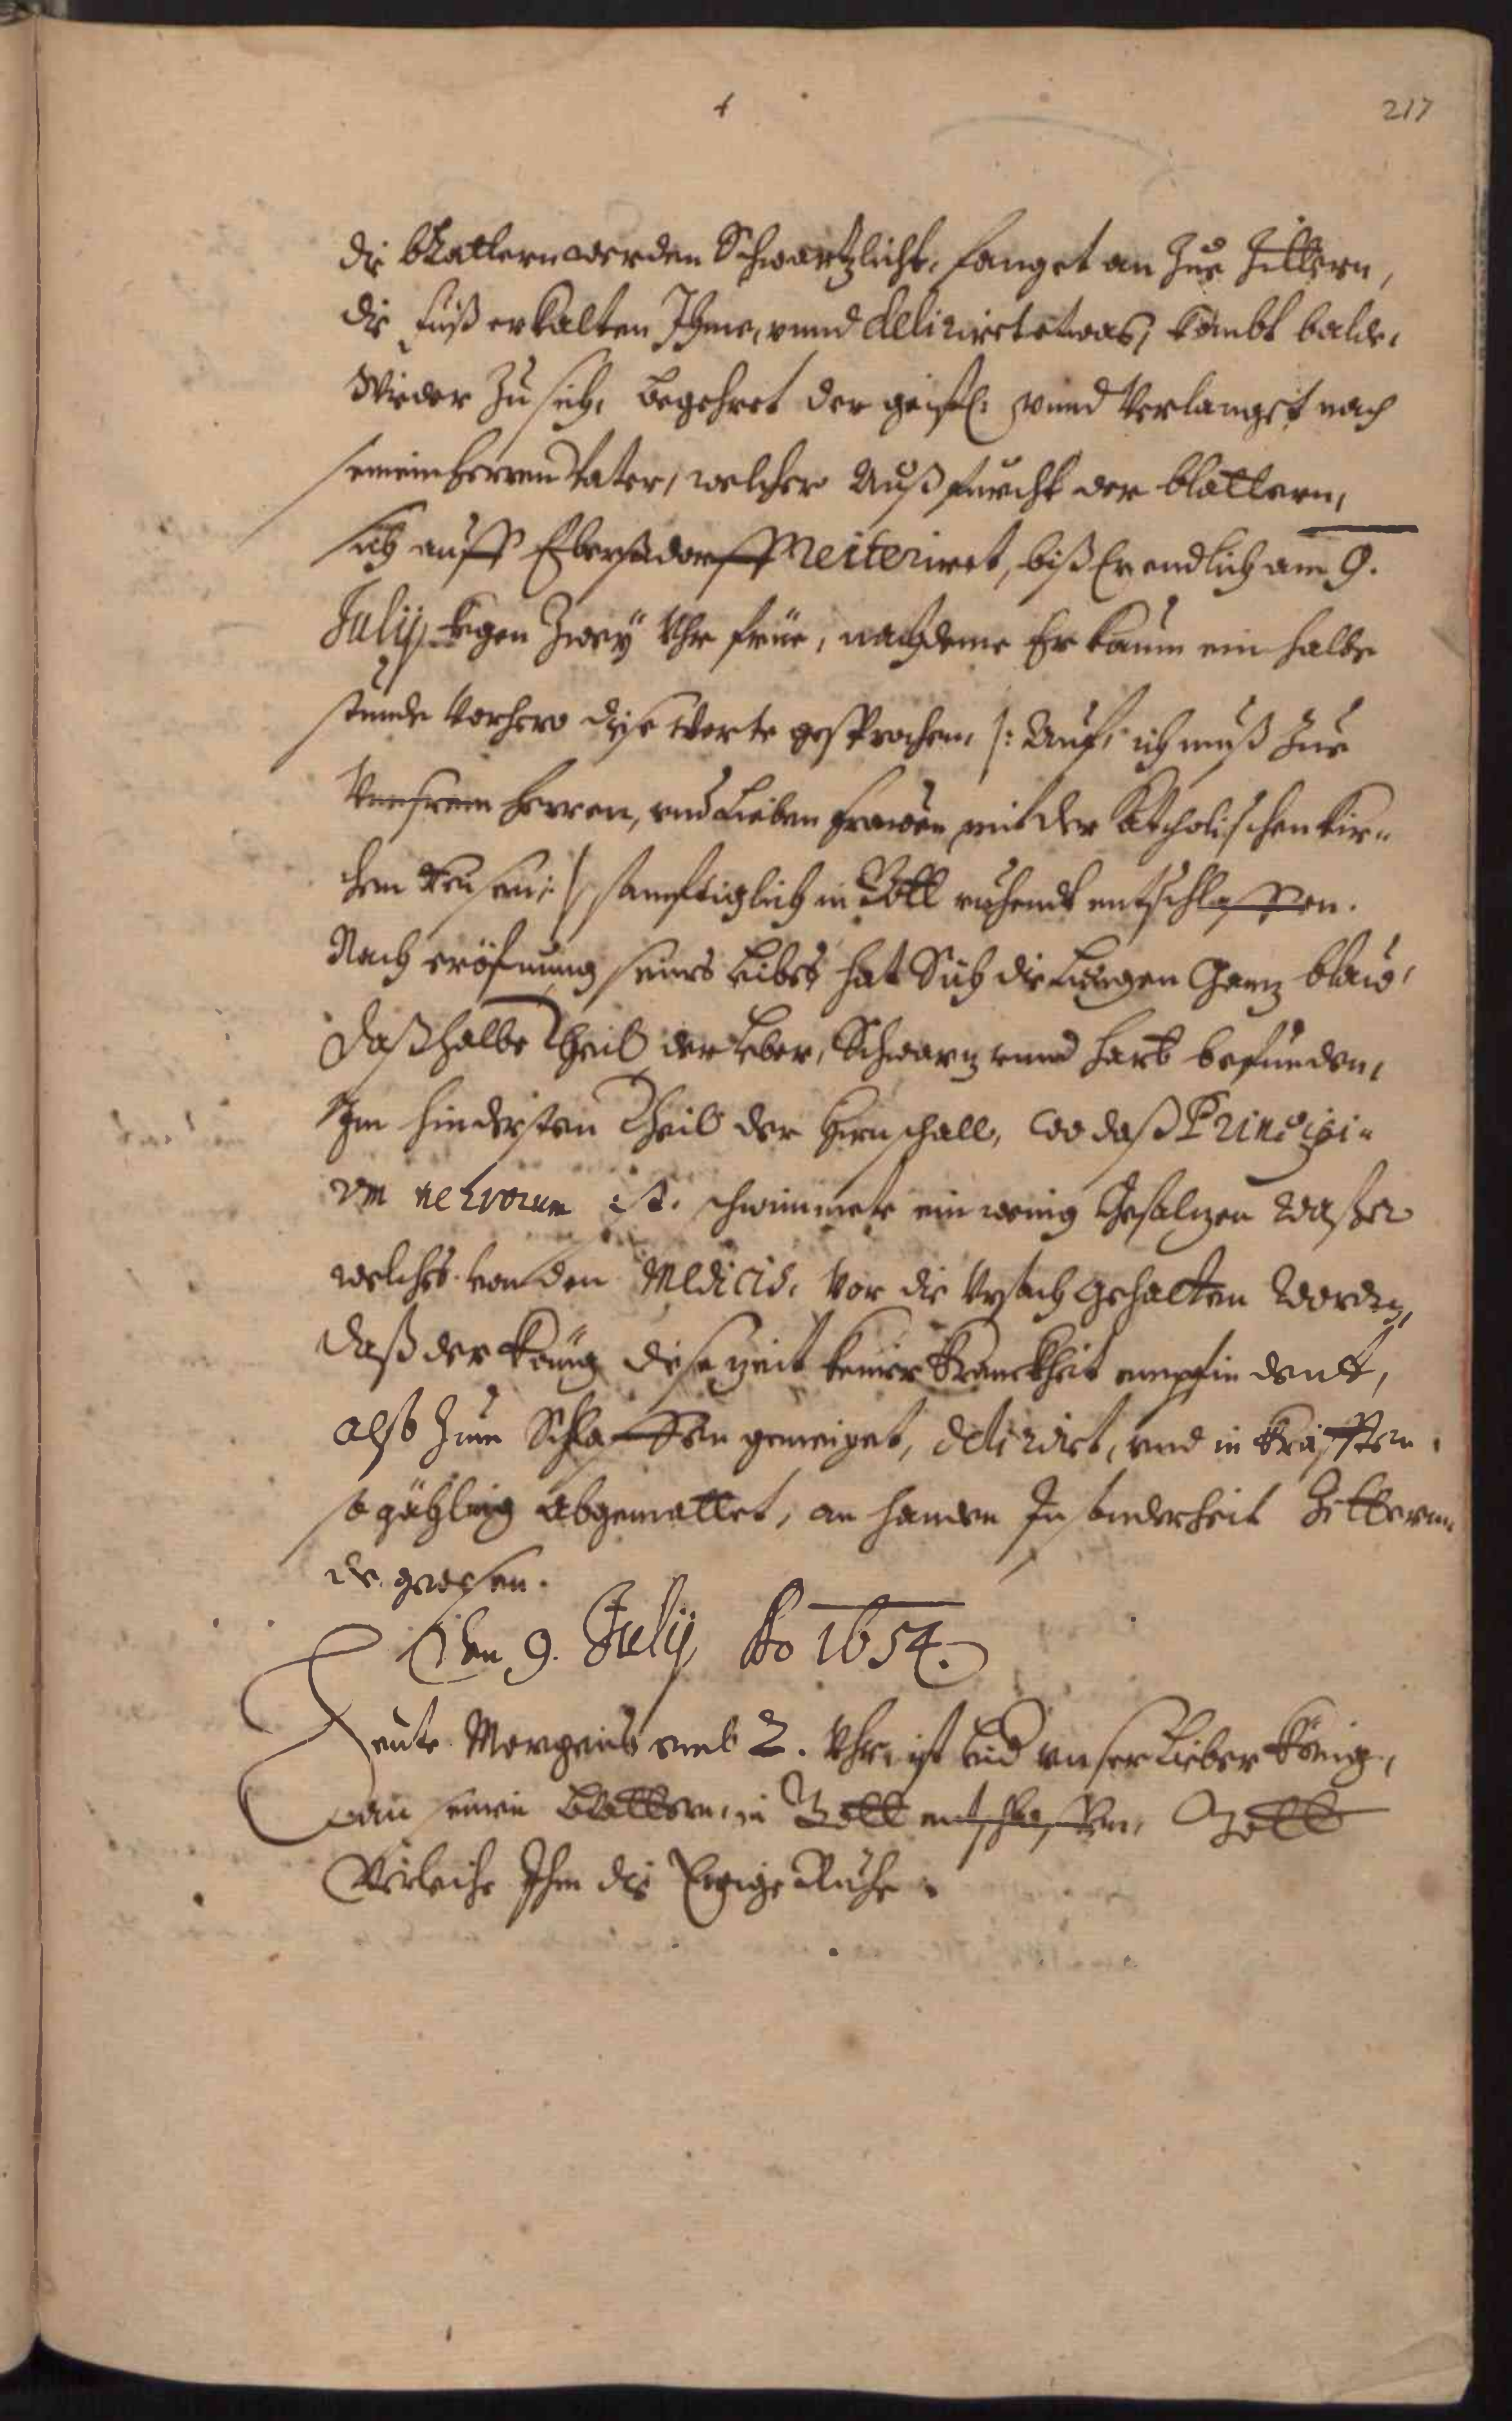 217
die blattern werden Schwartzlicht, fanget an Zue Zittern,
die fueß erkalten Ihme, vnnd deliriret etwas, kombt balde,
Wieder Zu sich, begehret der geistl: vnnd Verlanget nach
seinem herren Vater, welcher Auß furcht der blattern,
sich auff Eberstdorff reiteriret, biß Er endlich am 9.
Julij, kegen Zwey Vhr früe, nachdeme Er kaum ein halbe
stunde Vorhero diese Worte gesprochen /: Auf, ich muß Zue
Vnserem herren, vnd Lieben frawen mit der Catholischen kir=
chen :/ sanftiglich in Gott ruhendt entschlaffen.
Nach eröfnung seines Leibes hat Sich die Lungen Ganz blaw,
daß halbe Theil der Leber, Schwarz vnnd hart befunden,
Im hindersten Theil der hirnschall, wo daß Principi=
vm nervorum ist, schwimmete ein wenig Gesalzen Waßer
welches von den Medicis, vor die Vrsach gehalten Worden,
daß der König diese zeit keiner kranckheit empfindent,
alß Zum Schlaffen geneiget, delirirt, vnd in kräfften
so gählig Abgemattet, an handen Insonderheit Zitteren=
de geweßen.
Den 9. Julij Ao 1654.
Heute Morgens vmb 2. Vhr ist leid vnser Lieber König,
an seinen Blattern, in Gott entschlaffen, Gott
Verleihe Ihm die Ewige Ruhe.